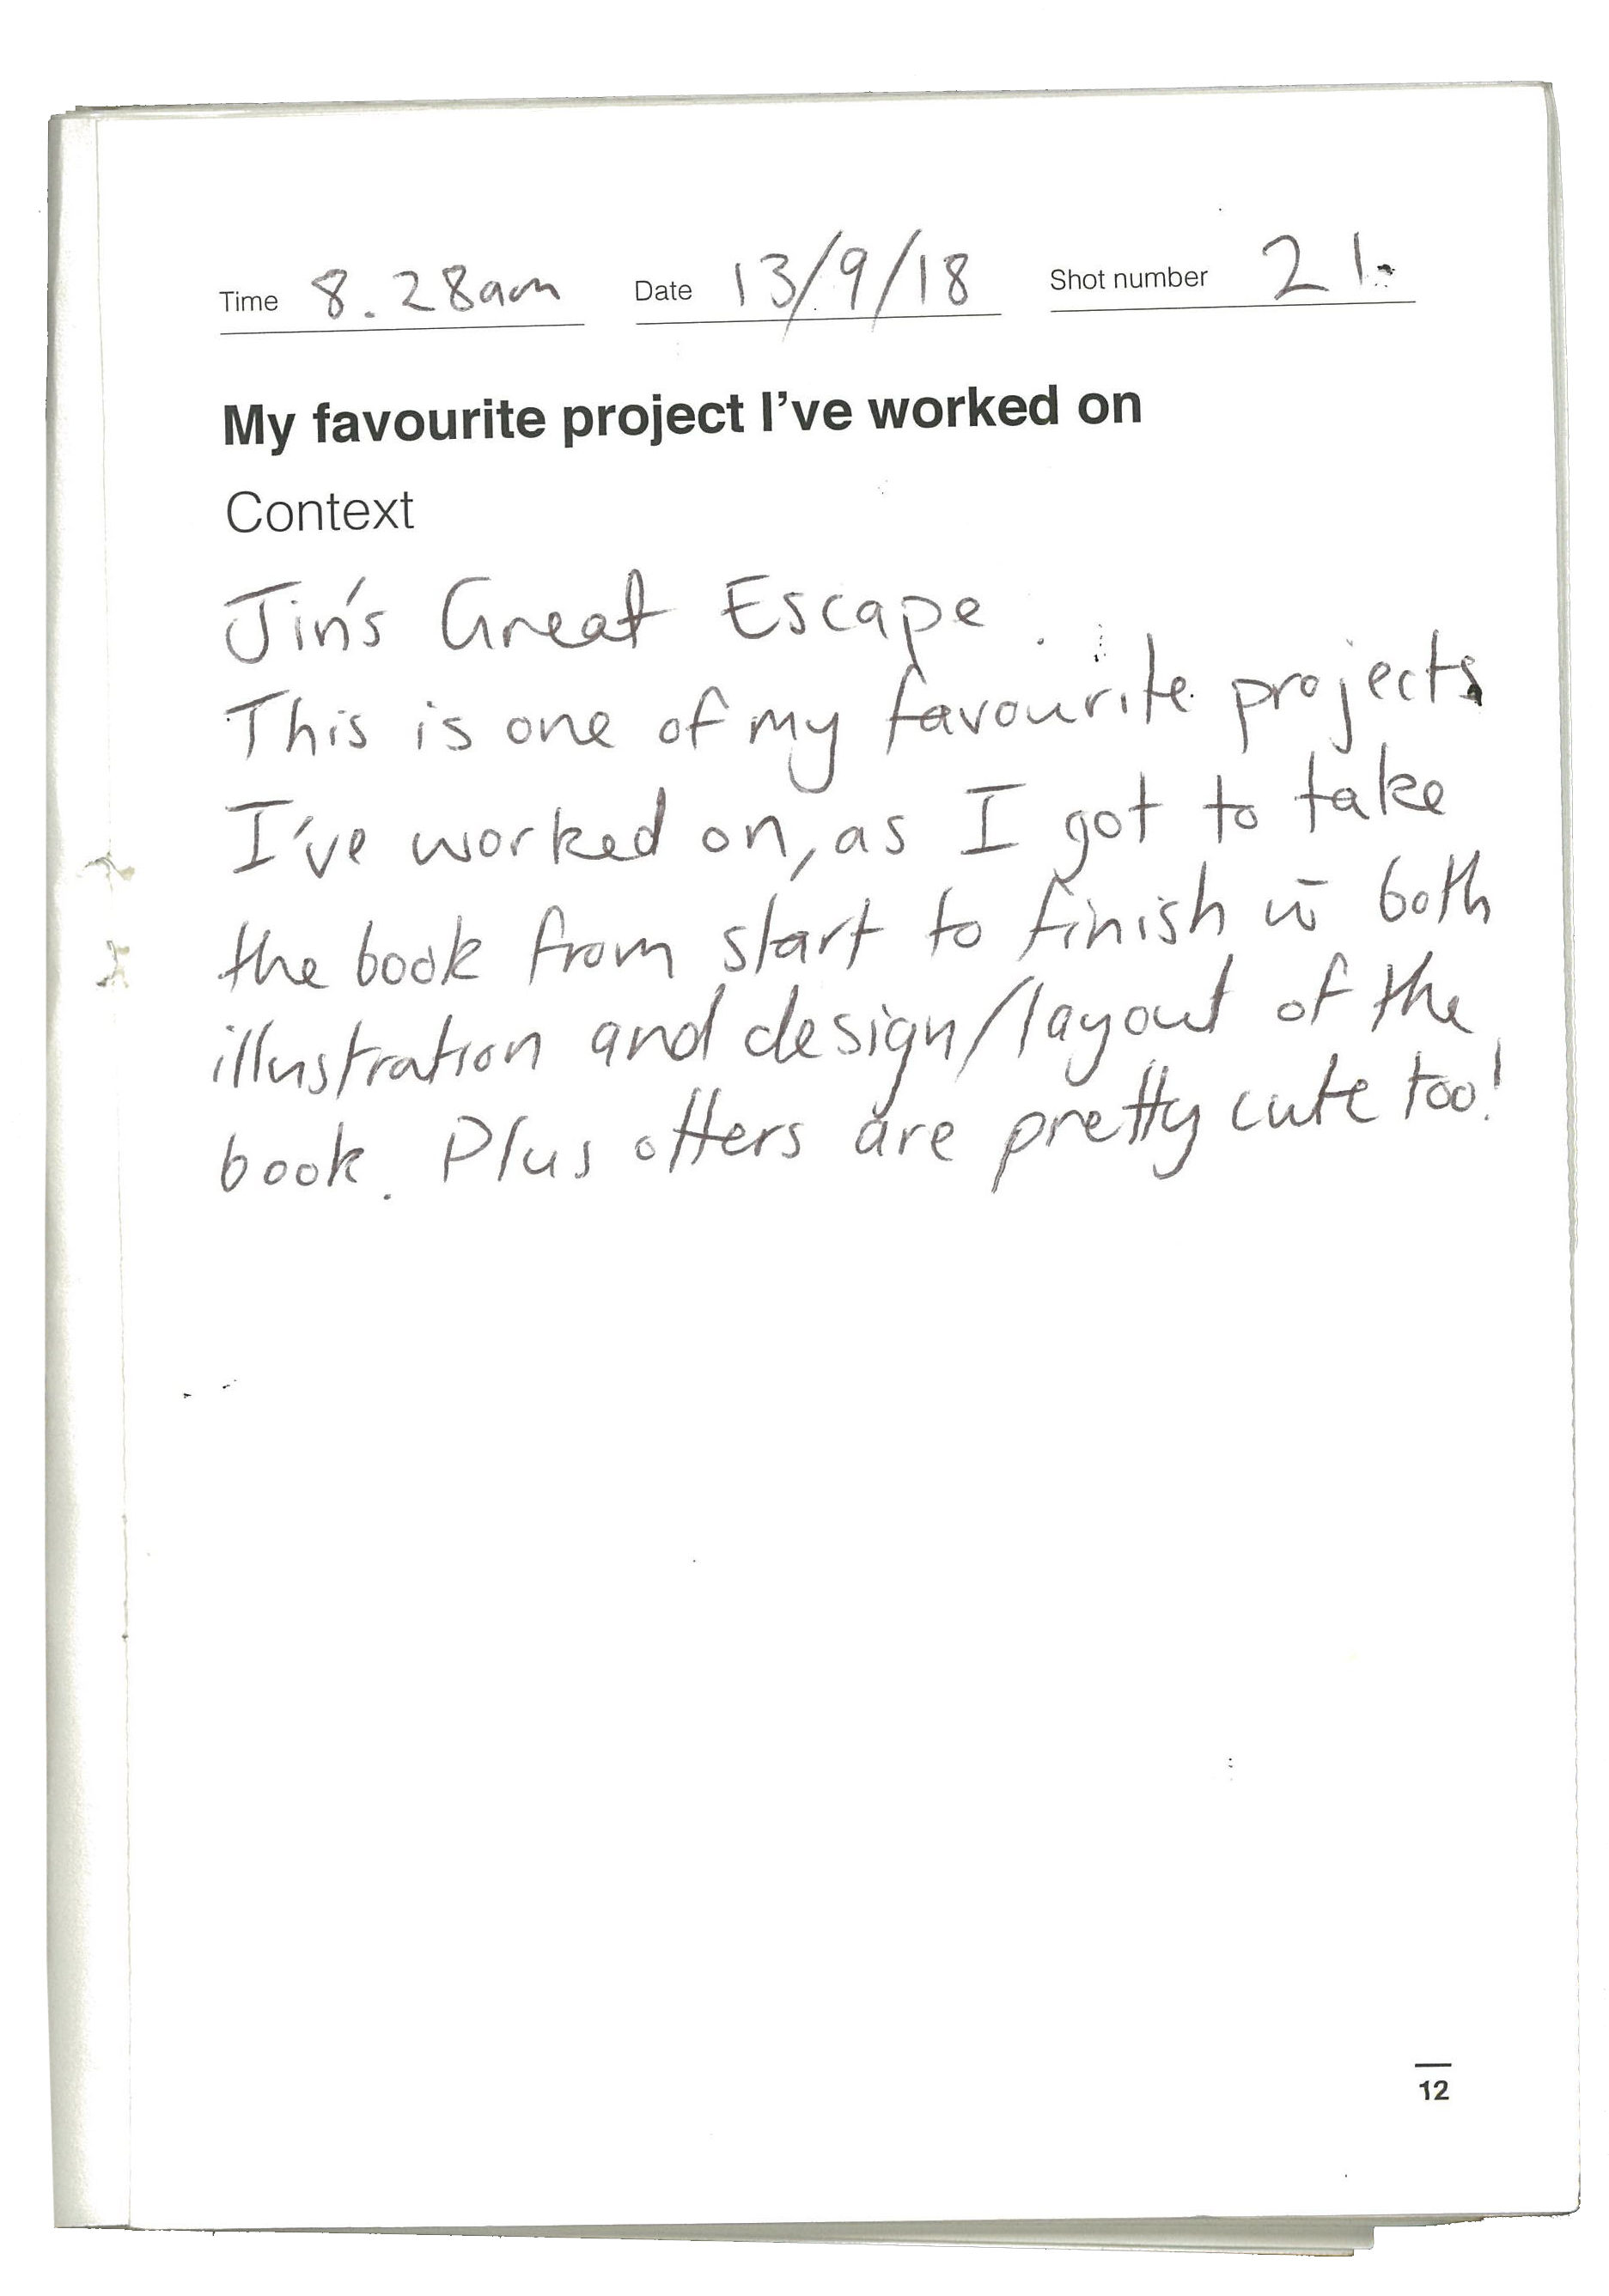 Time 8.28am Date 13/9/18 Shot number 21.
My favourite project I've worked on
Context
Jin's Great Escape.
This is one of my favourite projects
I've worked on, as I got to take
the book from start to finish w̄ both
illustration and design/layout of the
book. Plus otters are pretty cute too!
12